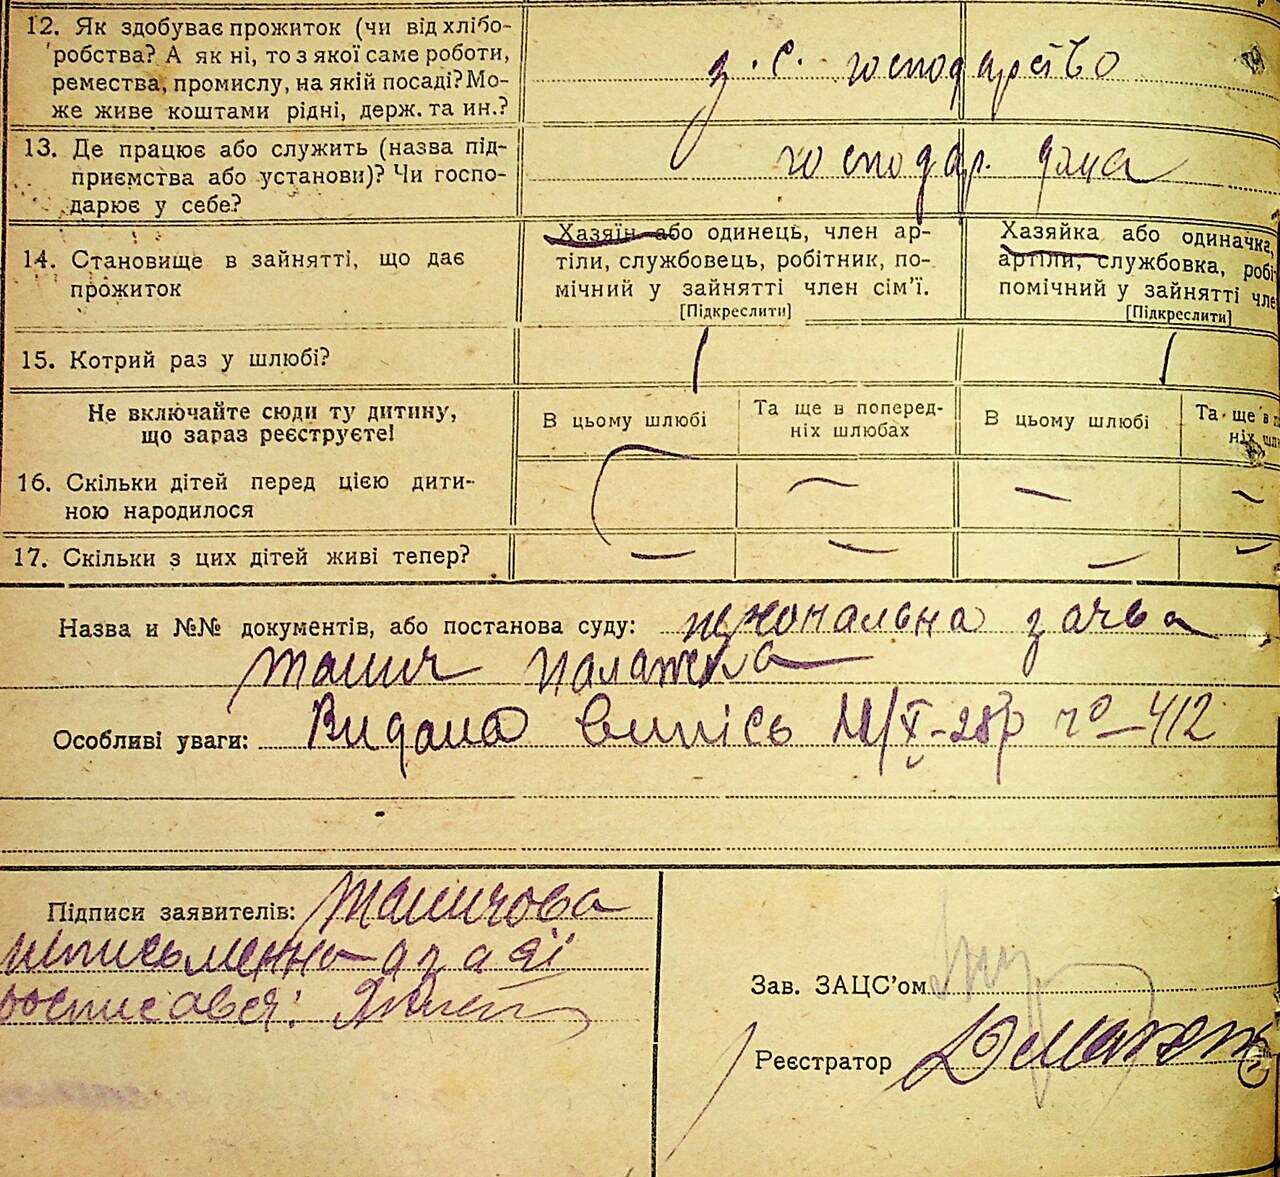 12. Як здобуває прожиток (чи від хлібо-
робства? А як ні, то з якої саме роботи,
ремества, промислу, на якій посаді? Мо-
же живе коштами рідні, держ. та ин.?
з. с. господарство
13. Де працює або служить (назва під-
приємства або установи)? Чи госпо-
дарює у себе?
господар. дома
14. Становище в зайнятті, що дає
прожиток
Хазяїн або одинець, член ар-
тіли, службовець, робітник, по-
мічний у зайнятті член сім'ї.
[Підкреслити]
Хазяйка або одиначка,
артіли, службовка, робі
помічний у зайнятті чле
[Підкреслити]
15. Котрий раз у шлюбі?
1 1
Не включайте сюди ту дитину,
що зараз реєструєте!
В цьому шлюбі
Та ще в поперед-
ніх шлюбах
В цьому шлюбі
Та ще в п
ніх шл
16. Скільки дітей перед цією дити-
ною народилося
— — —
17. Скільки з цих дітей живі тепер?
— — — —
Назва и №№ документів, або постанова суду: заява
Особливі уваги: Видана випись /X-28р № 412
Підписи заявителів:
неписьменна а за її
росписався:
Зав. ЗАЦС'ом
Реєстратор